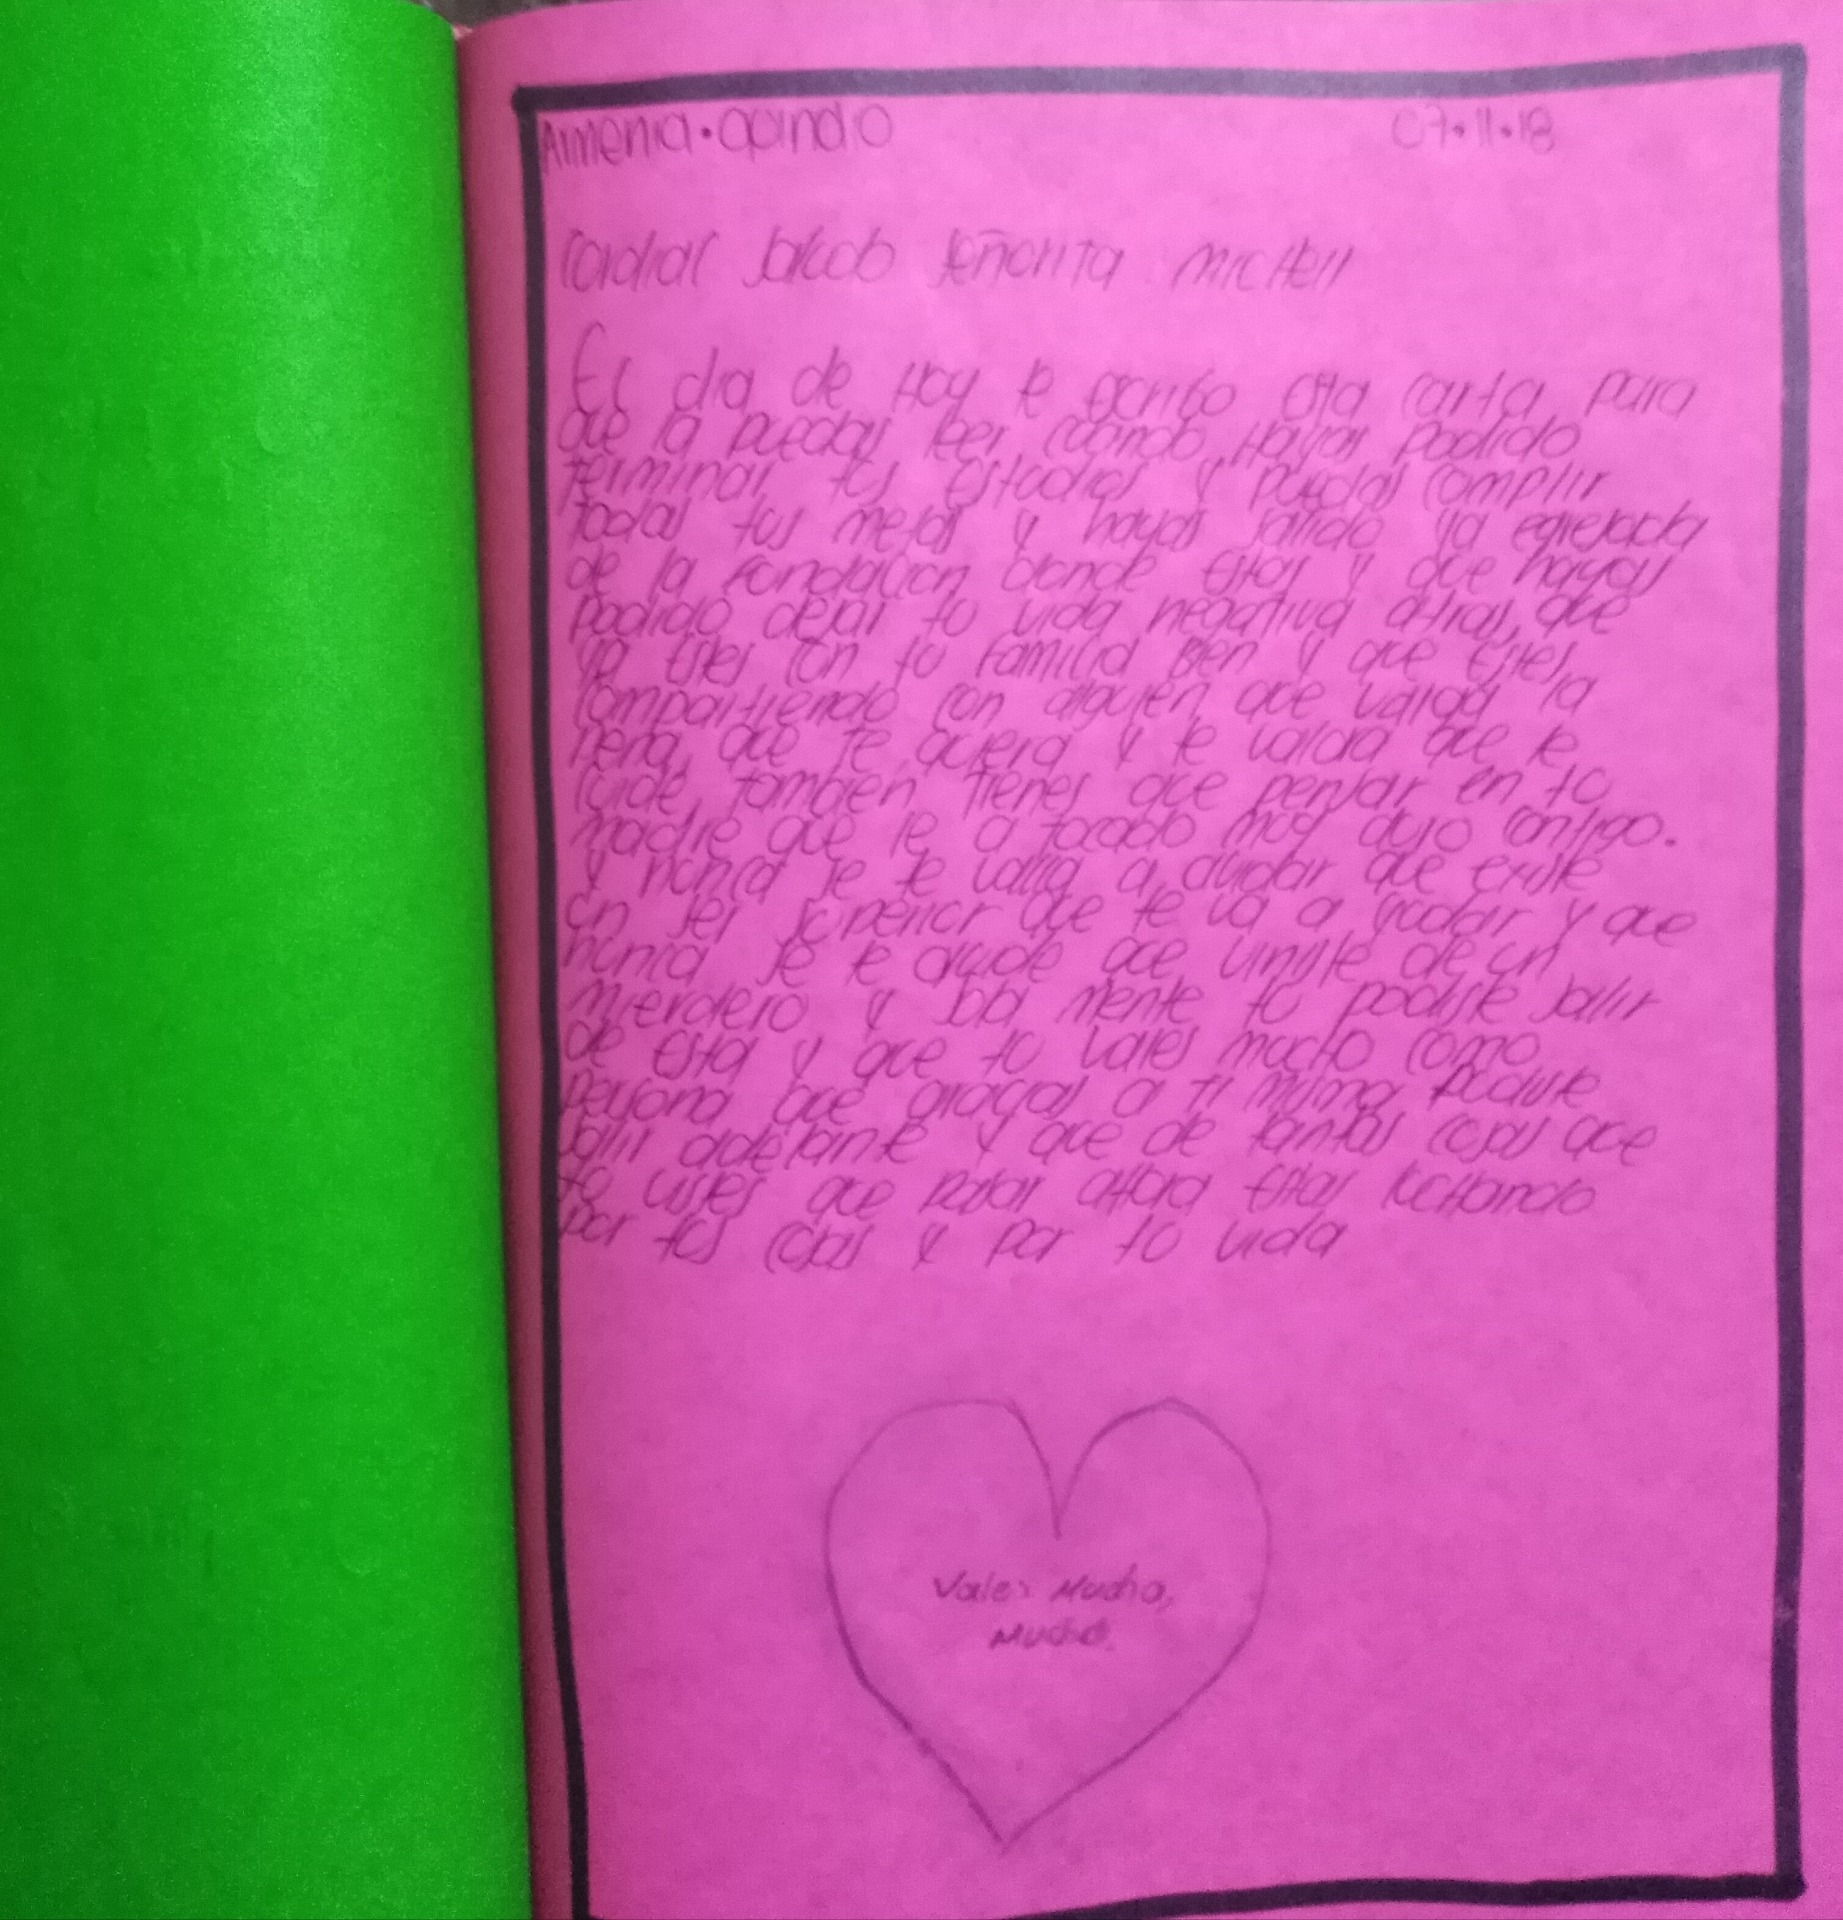 Armenia • Quindio 07•11•18
Cordial Saludo Señorita Michell
El dia de Hoy te escribo esta carta para
que la puedas leer cuando Hayas podido
terminar tus estudios y puedas complir
todas tus metas y hayas salido ya egresada
de la Fondacion donde estas y que hayas
podido dejar tu vida negativa atras, que
ya estes con tu Familia bien y que estes
compartiendo con alguien que valga la
pena, que te quiera y te valora que te
cuide, tambien tienes que pensar en tu
madre que le a tocado muy duro contigo.
y nunca se te valla a olvidar que existe
un ser superior que te va a yudar y que
nunca se te olvide que viniste de un
mierdero y sola mente tu podiste salir
de esta y que tu vales mucho como
persona que gracias a ti misma podiste
salir adelante y que de tantas cosas que
tu que pasar ahora estas luchando
por tus cosas y por tu vida
Vales Mucho,
Mucho.